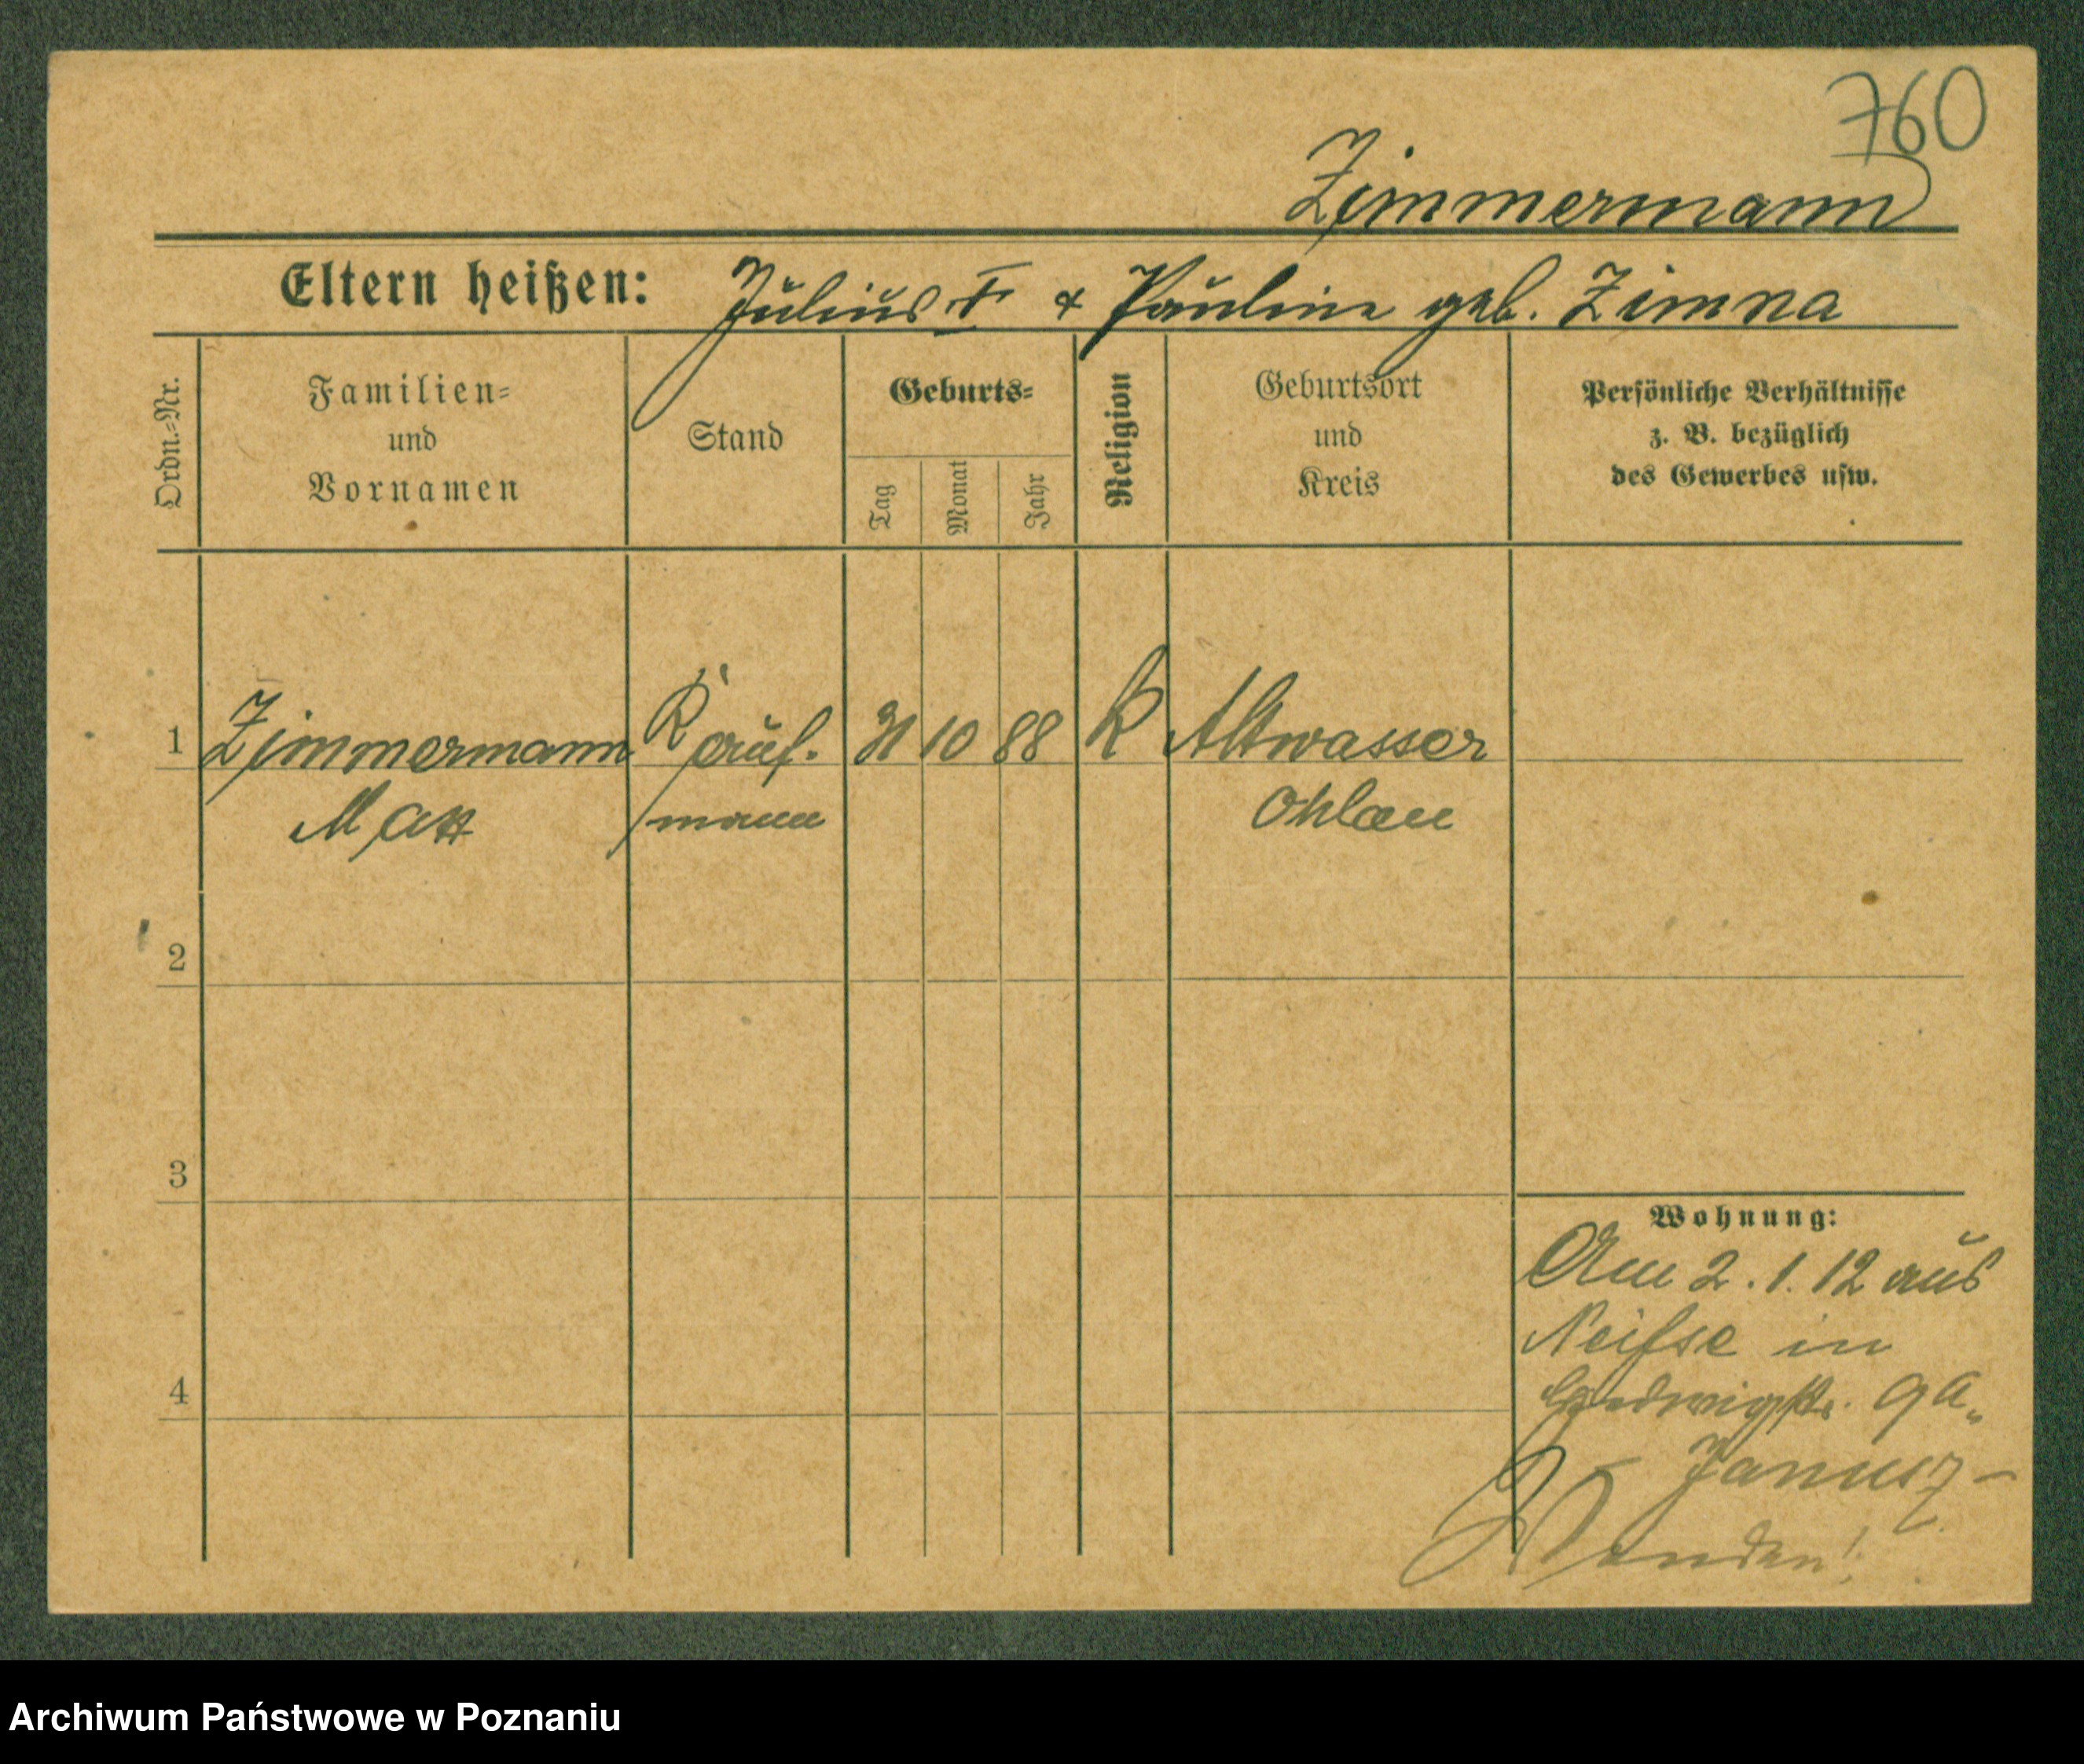 760
Zimmermann
Eltern heißen: Julius † & Pauline geb. Zimna
Ordn.-Nr.
Familien-
und
Vornamen
Stand
Geburts-
Tag
Monat
Jahr
Religion
Geburtsort
und
Kreis
Persönliche Verhältnisse
z. B. bezüglich
des Gewerbes usw.
1 Zimmermann Kauf- 31 10 88 K Altwasser
Max mann Ohlau
2
3
4
Wohnung:
Am 2.1.12 aus
Neifse in
9a
Janusz-
Wenden!
Archiwum Państwowe w Poznaniu